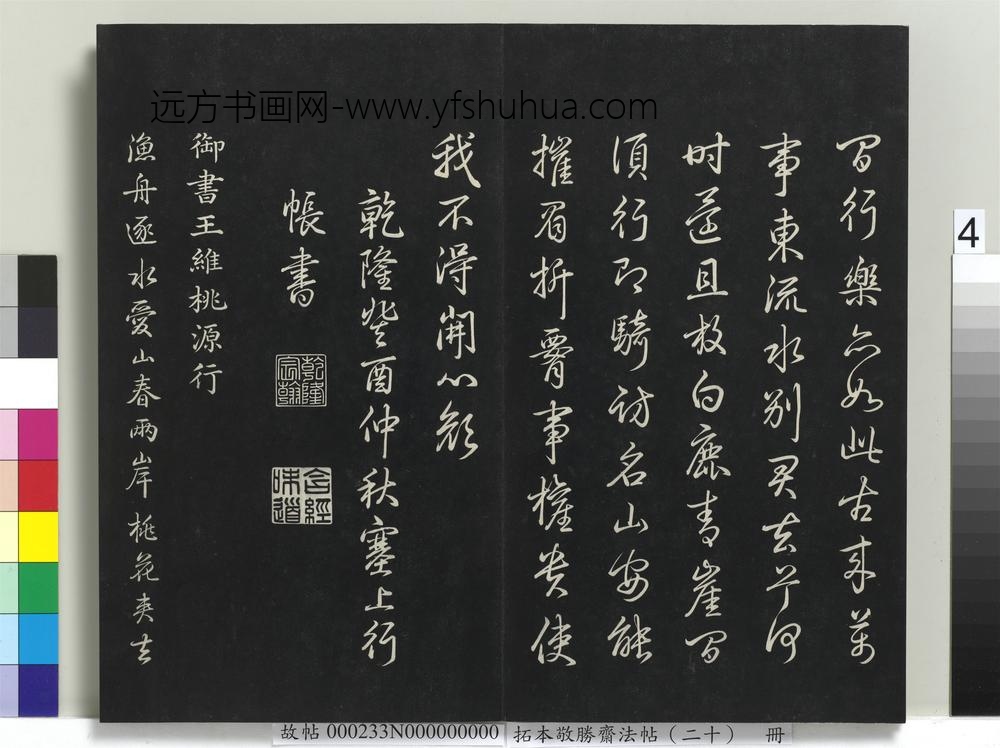 远方书画网-www.yfshuhua.com
間行樂亦如此古來萬
事東流水別君去兮何
時還且放白鹿青崖間
須行即騎訪名山安能
摧眉折腰事權貴使
我不得開心顏
乾隆癸酉仲秋塞上行
帳書
乾隆宸翰
含經味道
御書王維桃源行
漁舟逐水愛山春兩岸桃花夾去
4
故帖 000233N000000000
拓本敬勝齋法帖（二十） 冊